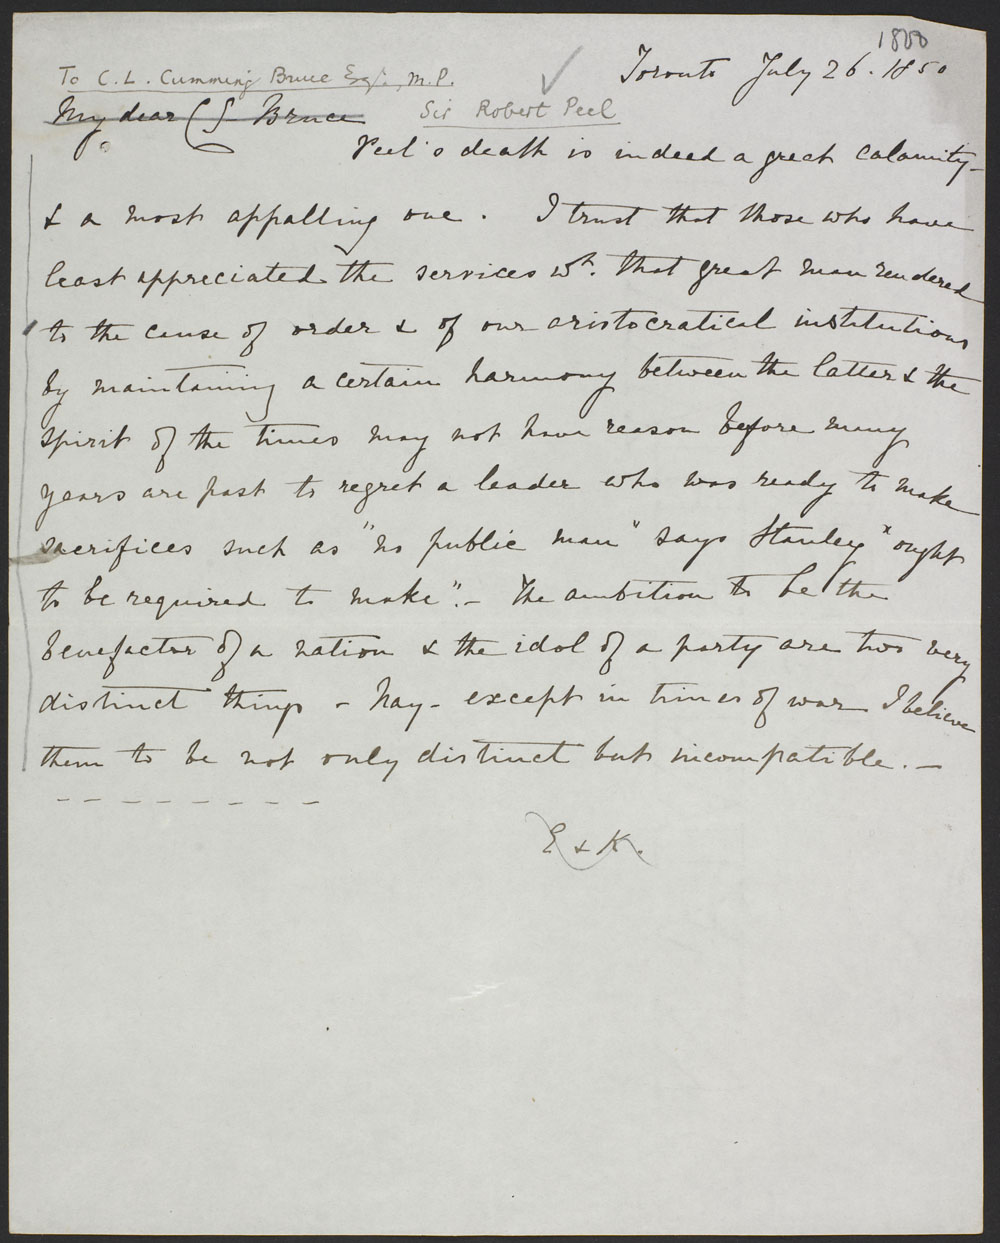 1850
Toronto July 26. 1850
To C. L. Cumming Bruce Esqr., M.P.
My dear C Bruce
Sir Robert Peel
Peel's death is indeed a great calamity -
& a most appalling one. I trust that those who have
least appreciated the services wh. that great man rendered
to the cause of order & of our aristocratical institutions
by maintaining a certain harmony between the latter & the
spirit of the times may not have reason before many
years are past to regret a leader who was ready to make
sacrifices such as "no public man" says Stanley "ought
to be required to make". - The ambition to be the
benefactor of a nation & the idol of a party are two very
distinct things - Nay - except in times of war I believe
them to be not only distinct but incompatible. -
E & K.